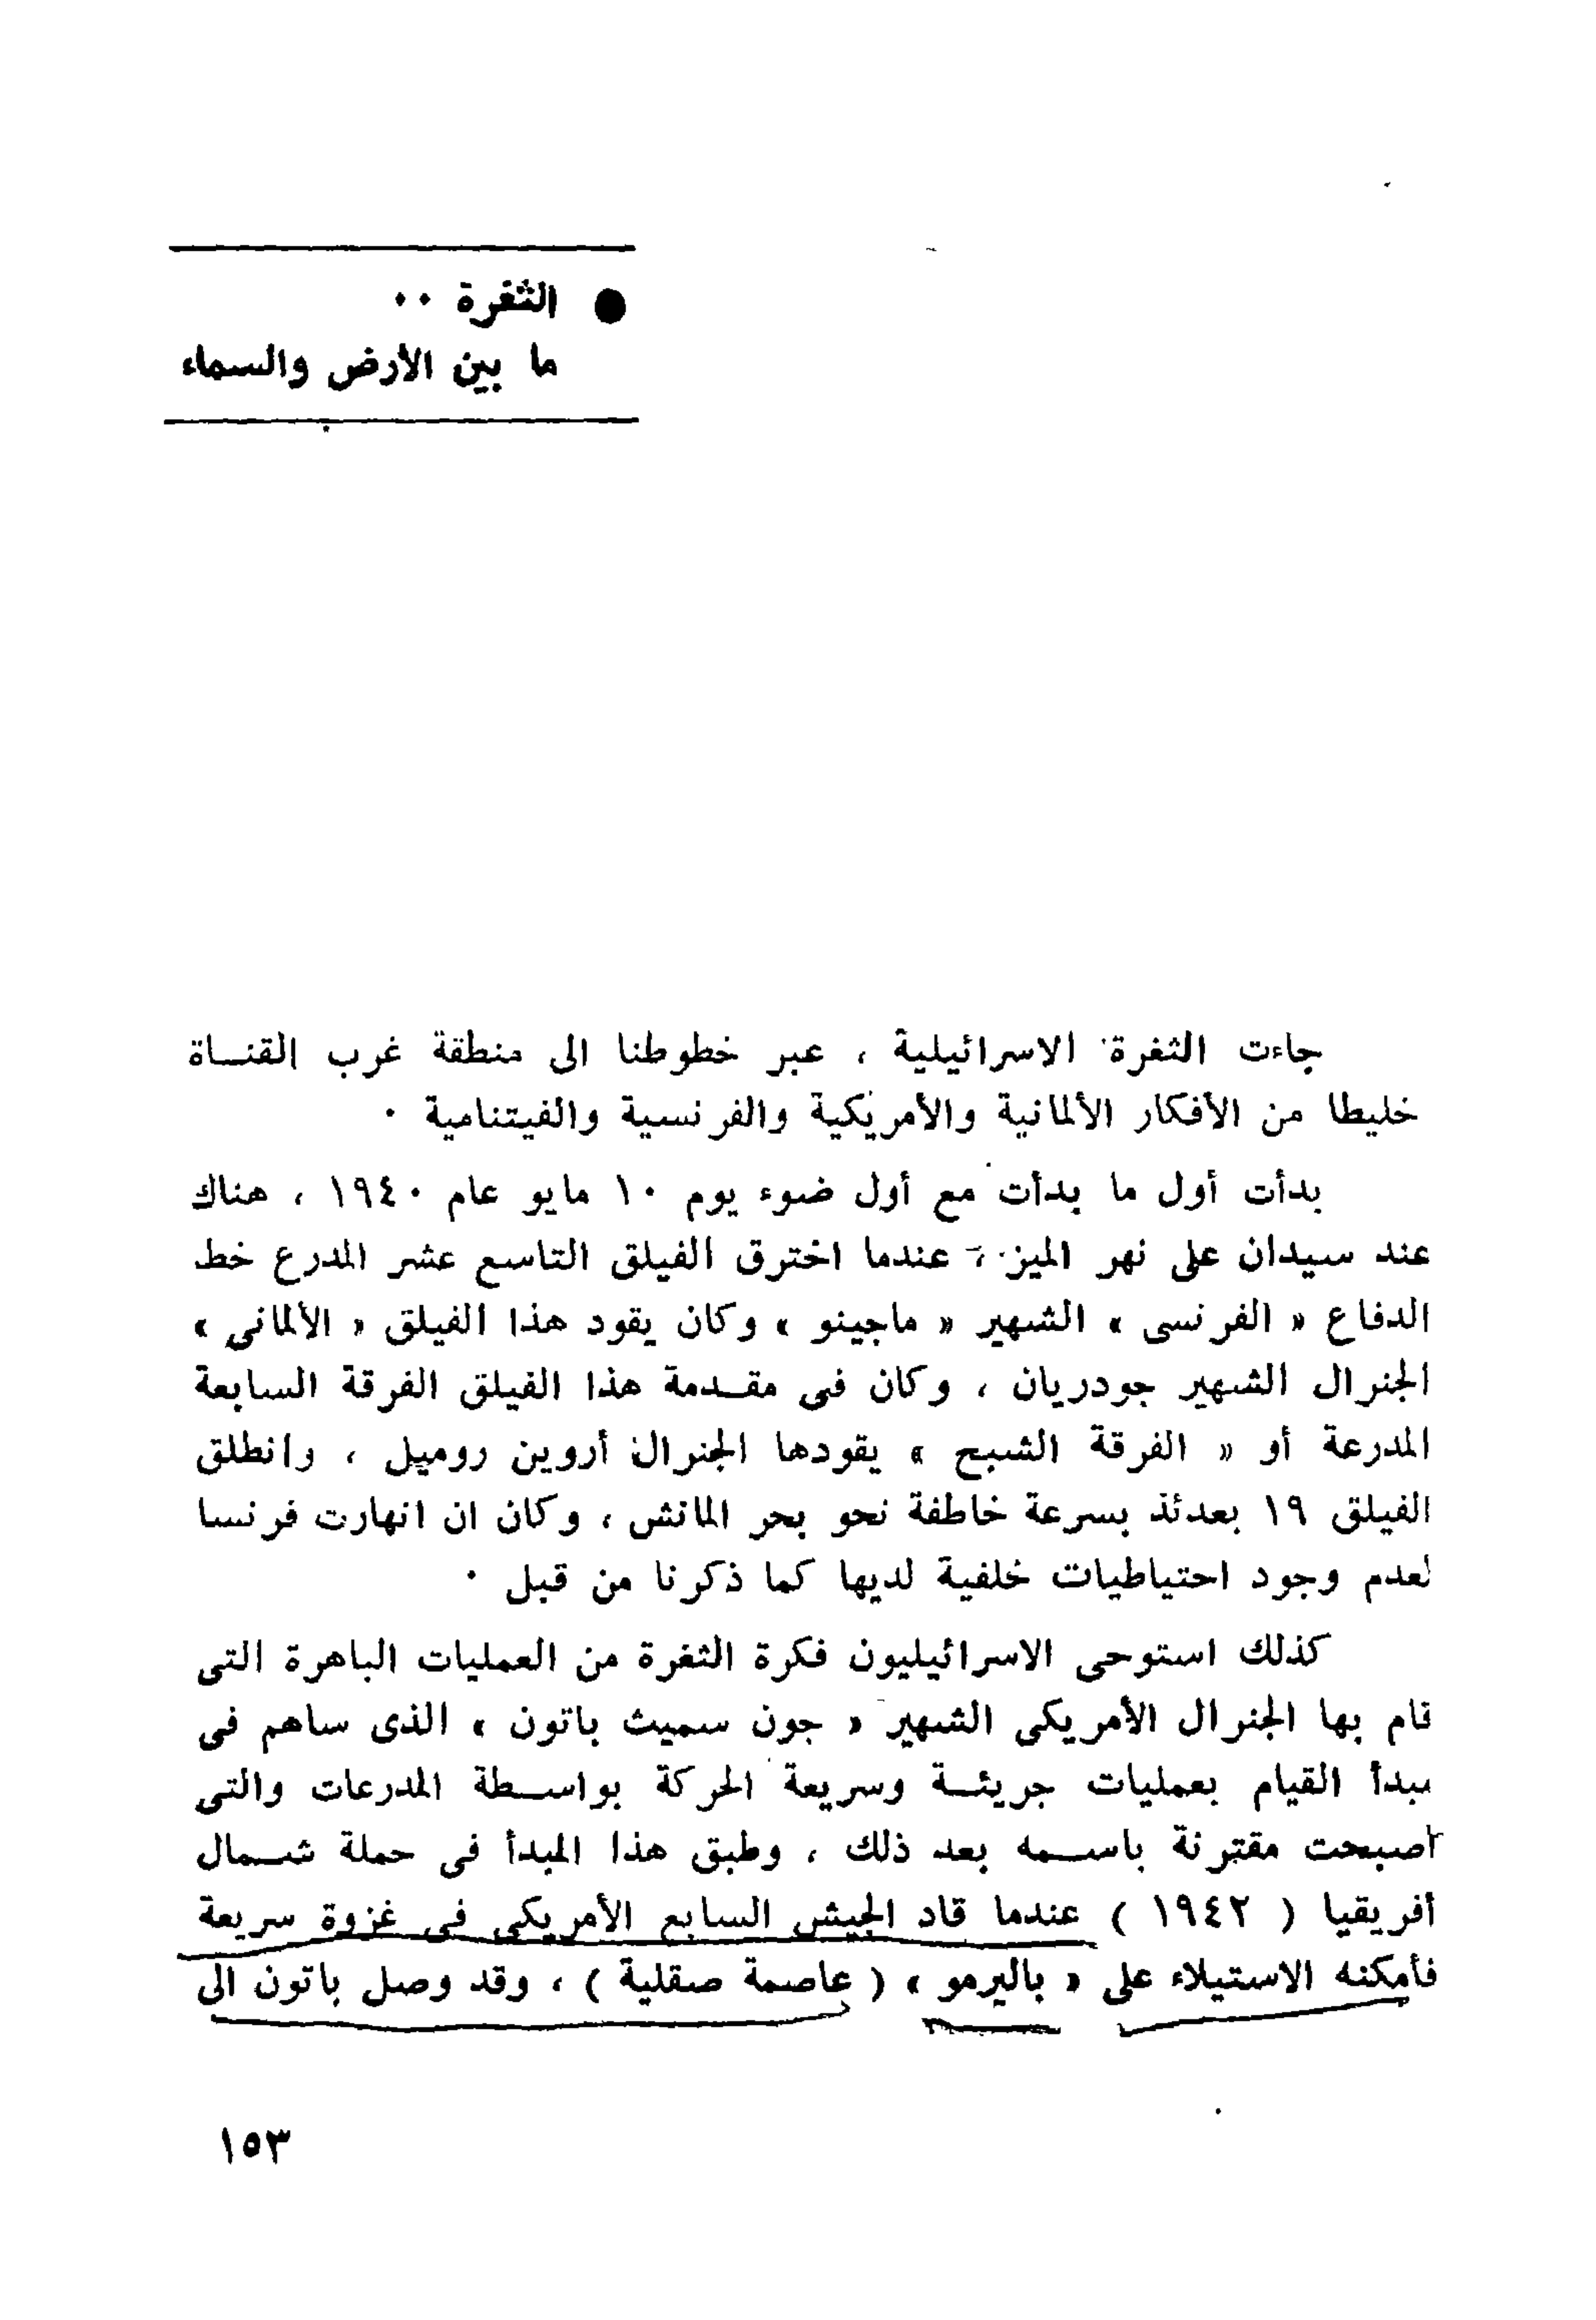 ● الثغرة ٠٠
ما بين الأرض والسماء
جاءت الثغرة الاسرائيلية ، عبر خطوطنا الى منطقة غرب القنـاة
خليطا من الأفكار الألمانية والأمريكية والفرنسية والفيتنامية ٠
بدأت أول ما بدأت مع أول ضوء يوم ١٠ مايو عام ١٩٤٠ ، هناك
عند سيدان على نهر الميز ، عندما اخترق الفيلق التاسع عشر المدرع خط
الدفاع « الفرنسى » الشهير « ماجينو » وكان يقود هذا الفيلق « الألمانى »
الجنرال الشهير جودريان ، وكان فى مقـدمة هذا الفيلق الفرقة السابعة
المدرعة أو « الفرقة الشبح » يقودها الجنرال أروين روميل ، وانطلق
الفيلق ١٩ بعدئذ بسرعة خاطفة نحو بحر المانش ، وكان ان انهارت فرنسا
لعدم وجود احتياطيات خلفية لديها كما ذكرنا من قبل ٠
كذلك استوحى الاسرائيليون فكرة الثغرة من العمليات الباهرة التى
قام بها الجنرال الأمريكى الشهير « جون سميث باتون » الذى ساهم فى
مبدأ القيام بعمليات جريئـة وسريعة الحركة بواسـطة المدرعات والتى
اصبحت مقترنة باسـمه بعد ذلك ، وطبق هذا المبدأ فى حملة شـمال
أفريقيا ( ١٩٤٢ ) عندما قاد الجيش السابع الأمريكى فى غزوة سريعة
فأمكنه الاستيلاء على « باليرمو » ( عاصمة صقلية ) ، وقد وصل باتون الى
١٥٣